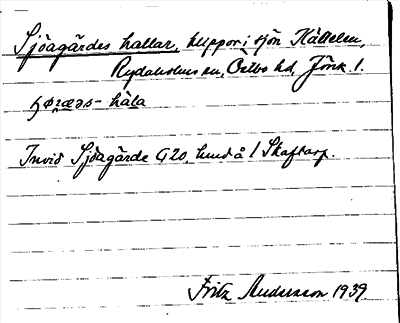 Sjöagärdes hallar, klippor i sjön Hällelen,
Rydaholms sn, Östbo hd, Jönk. l.
håla
Invid Sjöagärde G20, lund å 1 Skaftarp.
Fritz Andersson 1939